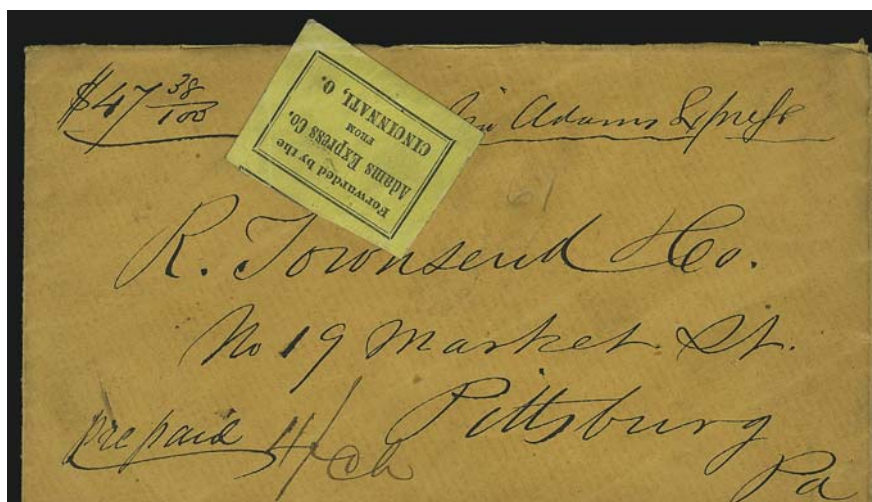 $47 38/100
Forwarded by the
Adams Express Co.
FROM
CINCINNATI, O.
Adams Express
61
R. Townsend & Co.
No 19 Market St.
Pittsburg
Pa
prepaid